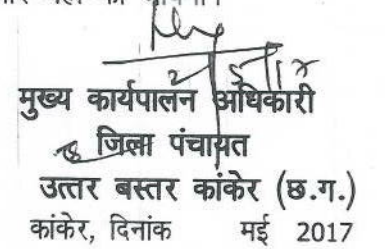 मुख्य कार्यपालन अधिकारी
जिला पंचायत
उत्तर बस्तर कांकेर (छ.ग.)
कांकेर, दिनांक मई 2017